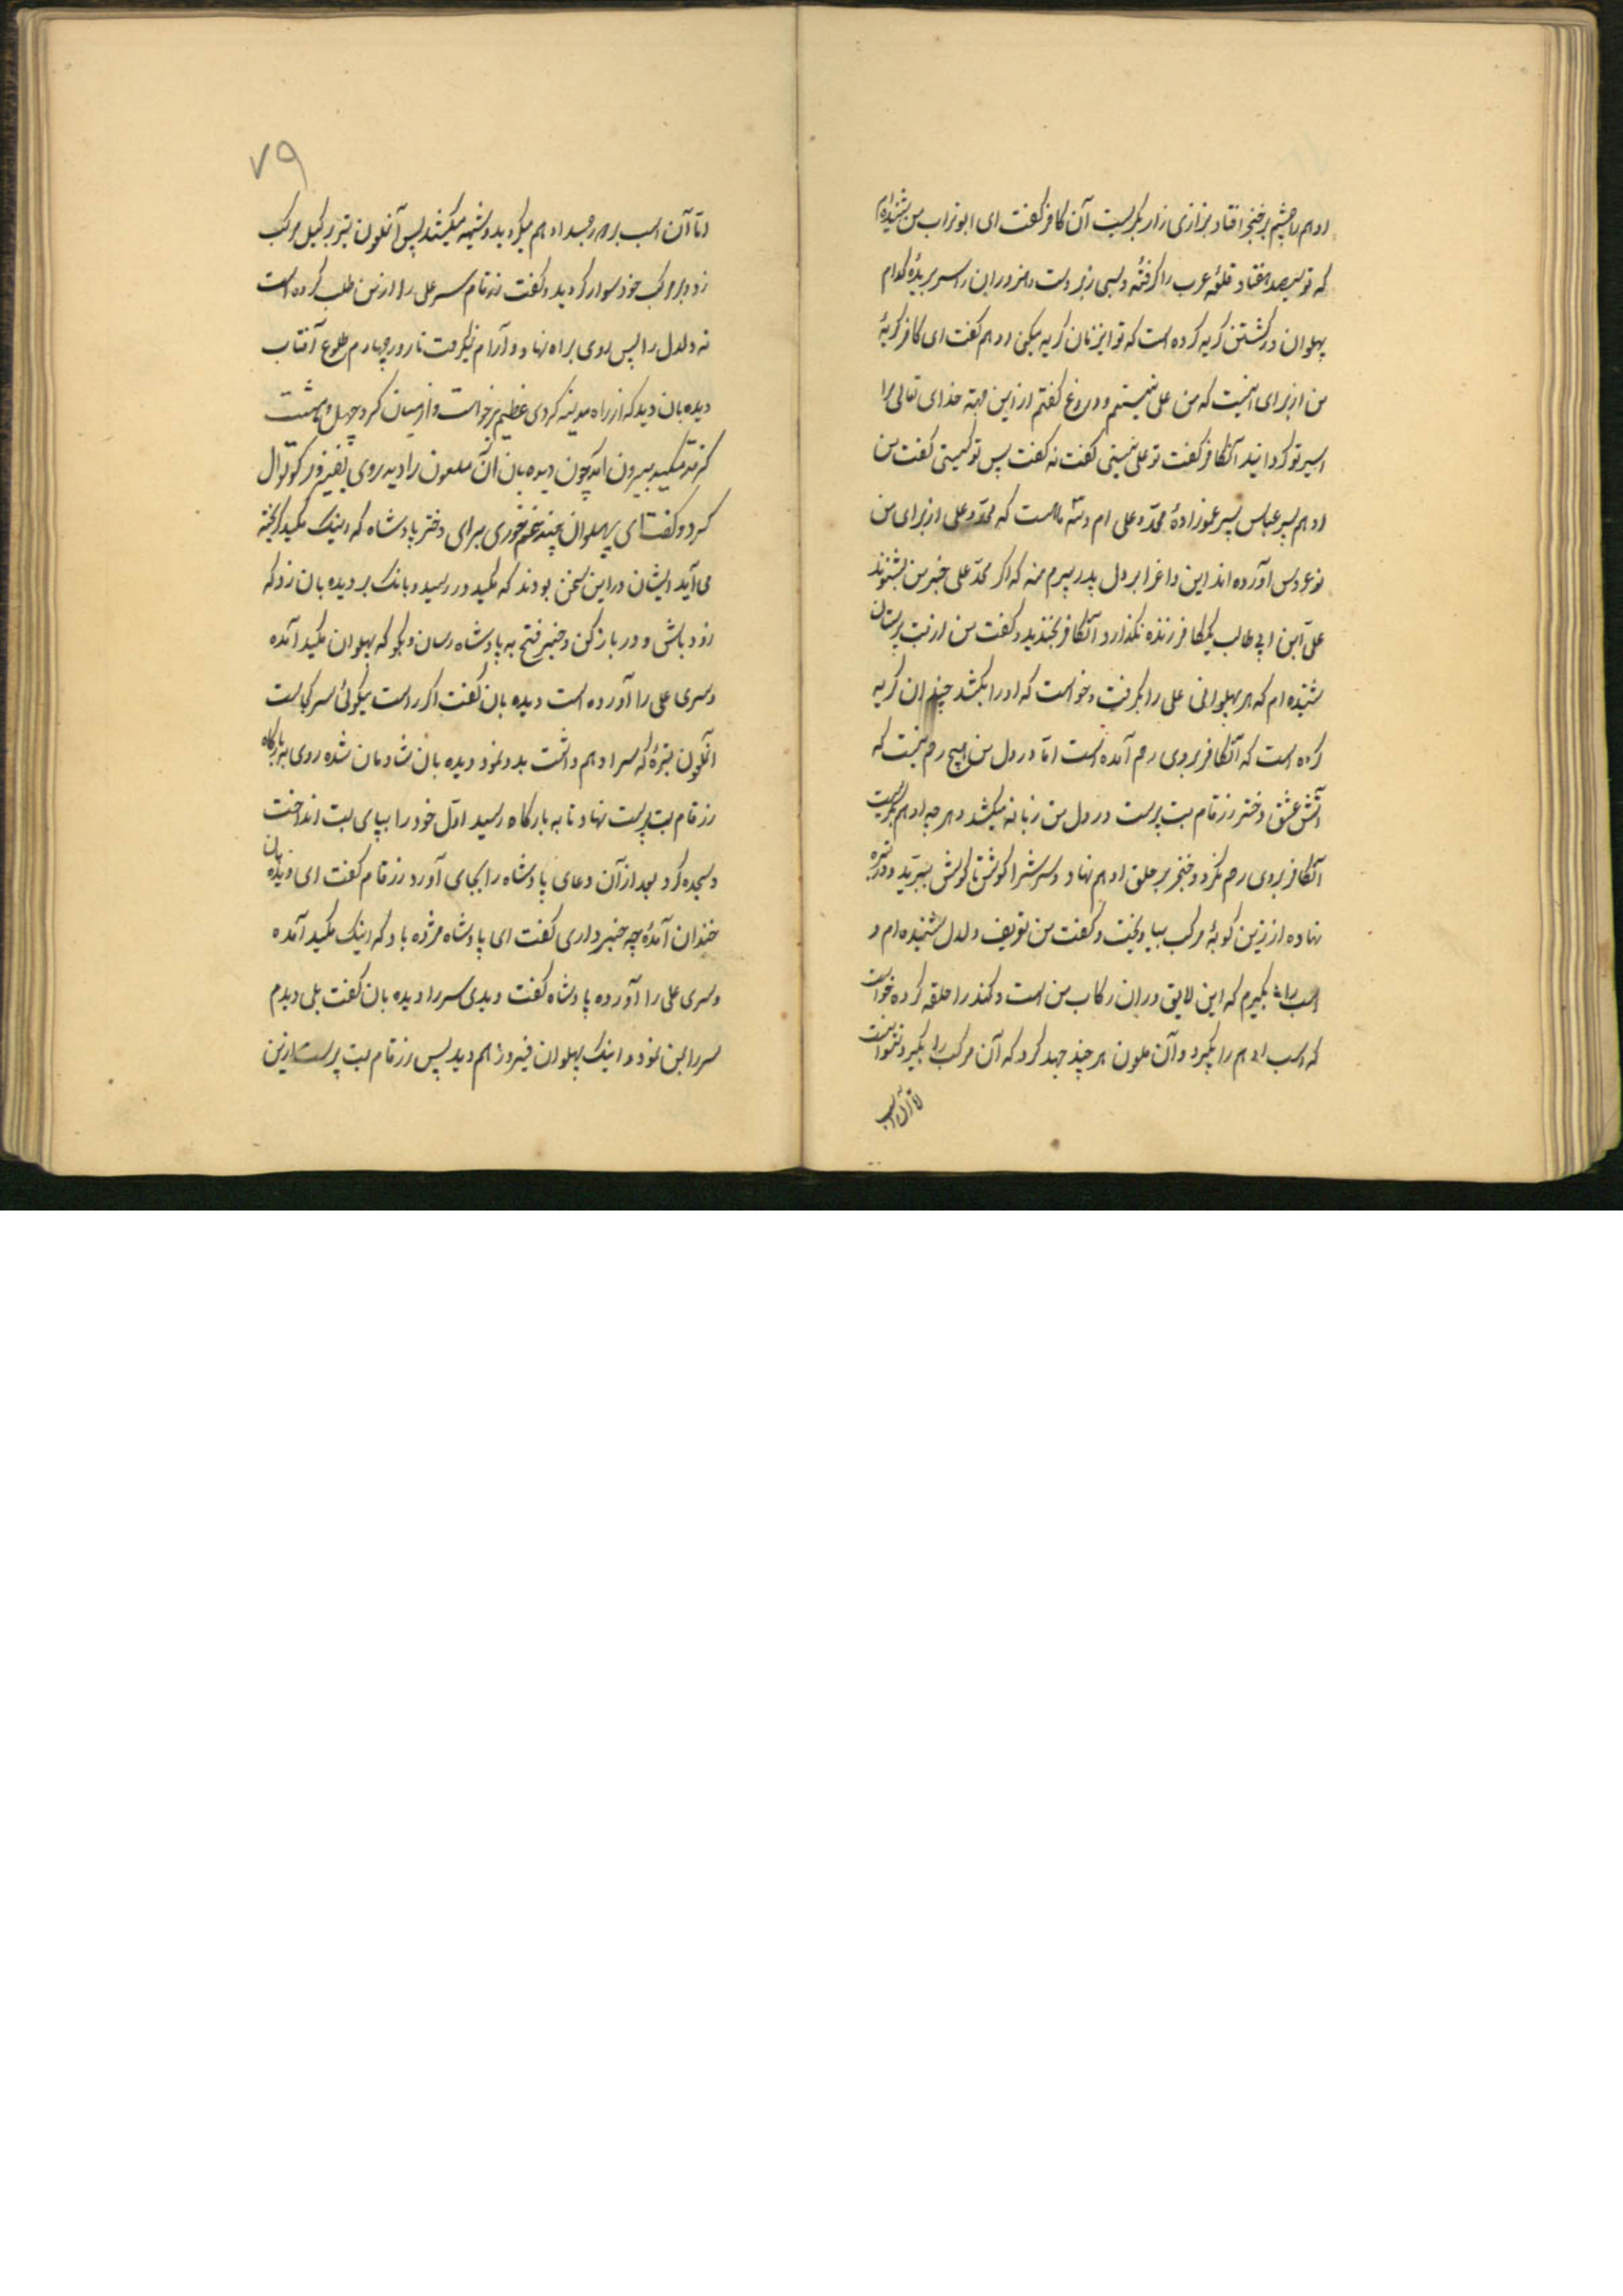 ادهم را چشم بر خنجر افتاد بزاری زار بگریست آن کافر گفت ای ابوتراب من شنیده‌ام
که تو سیصد هفتاد قلعهٔ عرب را گرفتهٔ و بسی زبردست و زوران را سر بریدهٔ کدام
پهلوان در کشتن گریه کرده است که تو این زمان گریه میکنی ادهم گفت ای کافر گریهٔ
من از برای اینست که من علی نیستم و دروغ گفتم از این جهة خدای تعالی مرا
اسیر تو گردانید آنکافر گفت تو علی نیستی گفت نه گفت پس تو کیستی گفت من
ادهم پسر عباس پسر عموزادهٔ محمد و علی ام و است که محمد و علی از برای من
نوعروس آورده‌اند این داغ را بر دل پدر پیرم منه که اگر محمد علی خبر من بشنوند
علی ابن ابی طالب یک کافر زنده نگذارد آنکافر بخندید و گفت من از بت پرستان
شنیده‌ام که هر پهلوانی علی را بگرفت و خواست که او را بکشد چندان گریه
کرده است که آنکافر بروی رحم آمده است امّا در دل من هیچ رحم نیست که
آتش عشق دختر زرقام بت پرست در دل من زبانه میکشد و هر چه ادهم بگریست
آنکافر بروی رحم نکرد و خنجر بر حلق ادهم نهاد و سرش را گوش تا گوش ببرید و در توبره
نهاده از زین کوبهٔ مرکب بیاویخت و گفت من تعریف دلدل شنیده‌ام و
اسب را بگیرم که این لایق در ان رکاب من است و کمند را حلقه کرده خواست
که اسب ادهم را بگیرد و آن ملعون هر چند جهد کرد که آن مرکب را بگیرد نتوانست
امّا آن اسب
۷۹
امّا آن اسب بر گرد جسد ادهم میگردید و شیهه میکشید پس آنملعون بتیر مرکب
زد و بر مرکب خود سوار گردید و گفت زرقام سر علی را از من طلب کرده است
نه دلدل را پس روی براه نهاد و آرام نگرفت تا روز چهارم طلوع آفتاب
دیده‌بان دید که از راه مدینه گردی عظیم برخواست و از میان گرد چهل و هشت
گز قد مکید بیرون آمد چون دیده‌بان آن ملعون را دید روی بفیروز کوتوال
کرد و گفت ای پهلوان چند غم خوری برای دختر پادشاه که اینک مکید گریخته
می‌آید ایشان در این سخن بودند که مکید در رسید و بانک بر دیده‌بان زد که
زود باش و در باز کن و خبر فتح به پادشاه رسان و بگو که پهلوان مکید آمده
و سری علی را آورده است دیده‌بان گفت اگر راست میگوئی سر کجاست
آنملعون توبرهٔ که سر ادهم داشت بدو نمود دیده‌بان شادمان شده روی به بارگاه
زرقام بت پرست نهاد تا به بارگاه رسید اوّل خود را بپای بت انداخت
و سجده کرد بعد از آن دعای پادشاه را بجای آورد زرقام گفت ای دیده‌بان
خندان آمدهٔ چه خبر داری گفت ای پادشاه مژده باد که اینک مکید آمده
و سری علی را آورده پادشاه گفت دیدی سر را دیده‌بان گفت بلی دیدم
سر را بمن نمود و اینک پهلوان فیروز هم دید پس زرقام بت پرست ازین